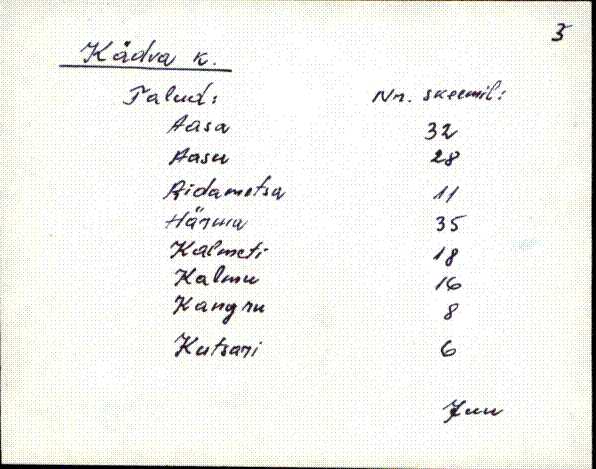 3
Kädva k.
Talud: Nr. skeemil:
Aasa 32
Aasu 28
Aidametsa 11
Härma 35
Kalmeti 18
Kalmu 16
Kangru 8
Kutsari 6